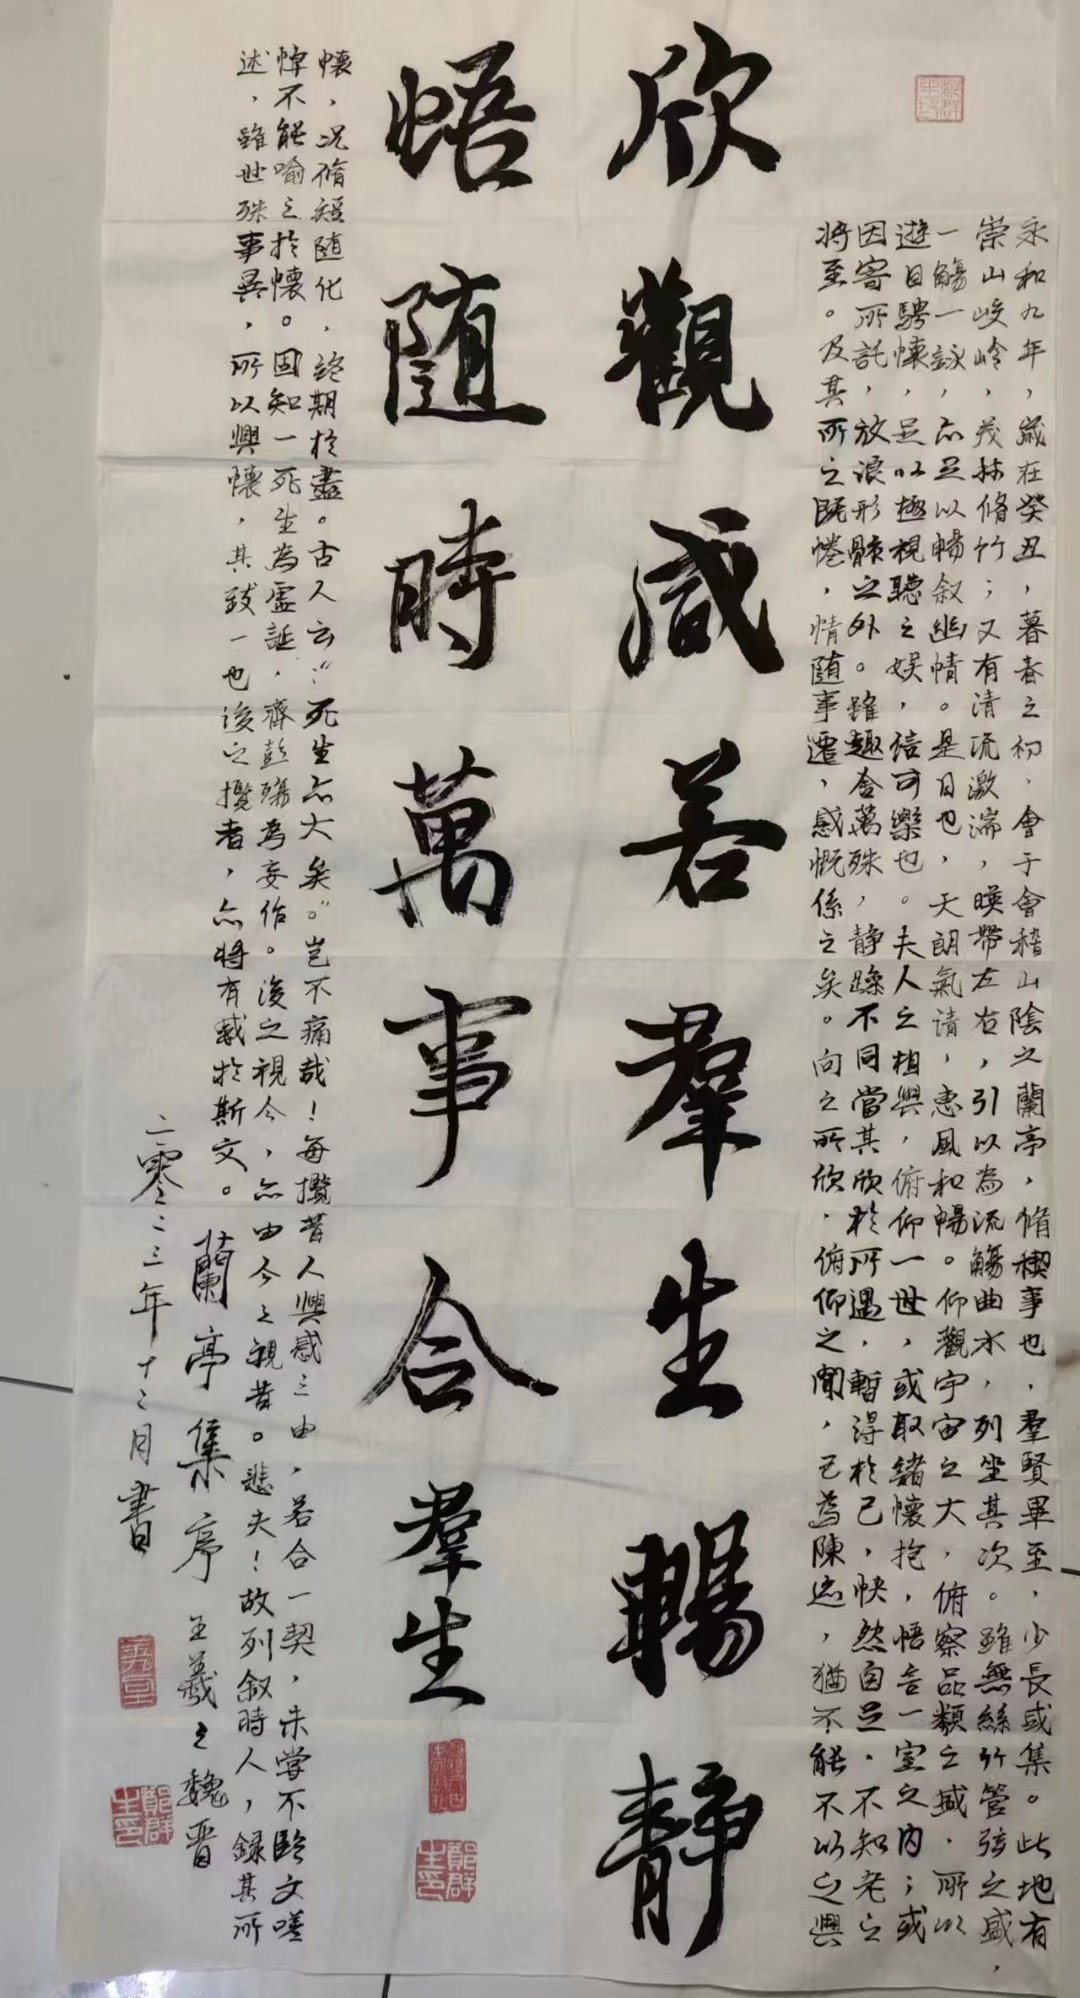 永和九年，歲在癸丑，暮春之初，會于會稽山陰之蘭亭，脩稧事也，羣賢畢至，少長咸集。此地有
崇山峻岭，茂林脩竹；又有清流激湍，暎帶左右，引以為流觴曲水，列坐其次。雖無絲竹管弦之盛，
一觴一詠，亦足以暢叙幽情。是日也，天朗氣清，惠風和暢。仰觀宇宙之大，俯察品類之盛，所以
遊目騁懷，足以極視聽之娱，信可樂也。夫人之相與，俯仰一世，或取諸懷抱，悟言一室之內；或
因寄所託，放浪形骸之外。雖趣舍萬殊，静躁不同當其欣於所遇，暫得於己，快然自足，不知老之
将至。及其所之既惓，情随事遷，感慨係之矣。向之所欣，俯仰之閒，已為陳迹，猶不能不以之興
欣觀咸若羣生暢靜
悟随時萬事合羣生
懷，况脩短随化，終期於盡。古人云：“死生亦大矣。”岂不痛哉！每攬昔人興感之由，若合一契，未嘗不臨文嗟
悼不能喻之於懷。固知一死生為虚誕，齊彭殤為妄作。後之視今，亦由今之視昔。悲夫！故列叙時人，錄其所
述，雖世殊事異，所以興懷，其致一也後之攬者，亦将有感於斯文。
蘭亭集序 王羲之魏晋
二零二三年十二月書
鄭群生印
鄭群生印